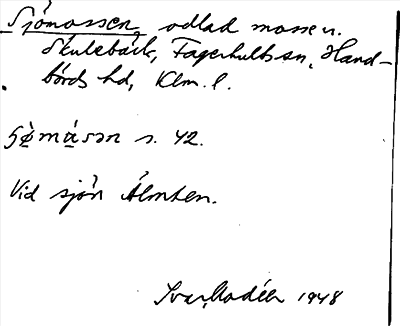 Sjömossen odlad mosse v.
Skulebäck, Fagerhults sn, Hand-
börds hd, Klm. l.
s. 42.
Vid sjön Älmten.
Ivar Modéer 1948